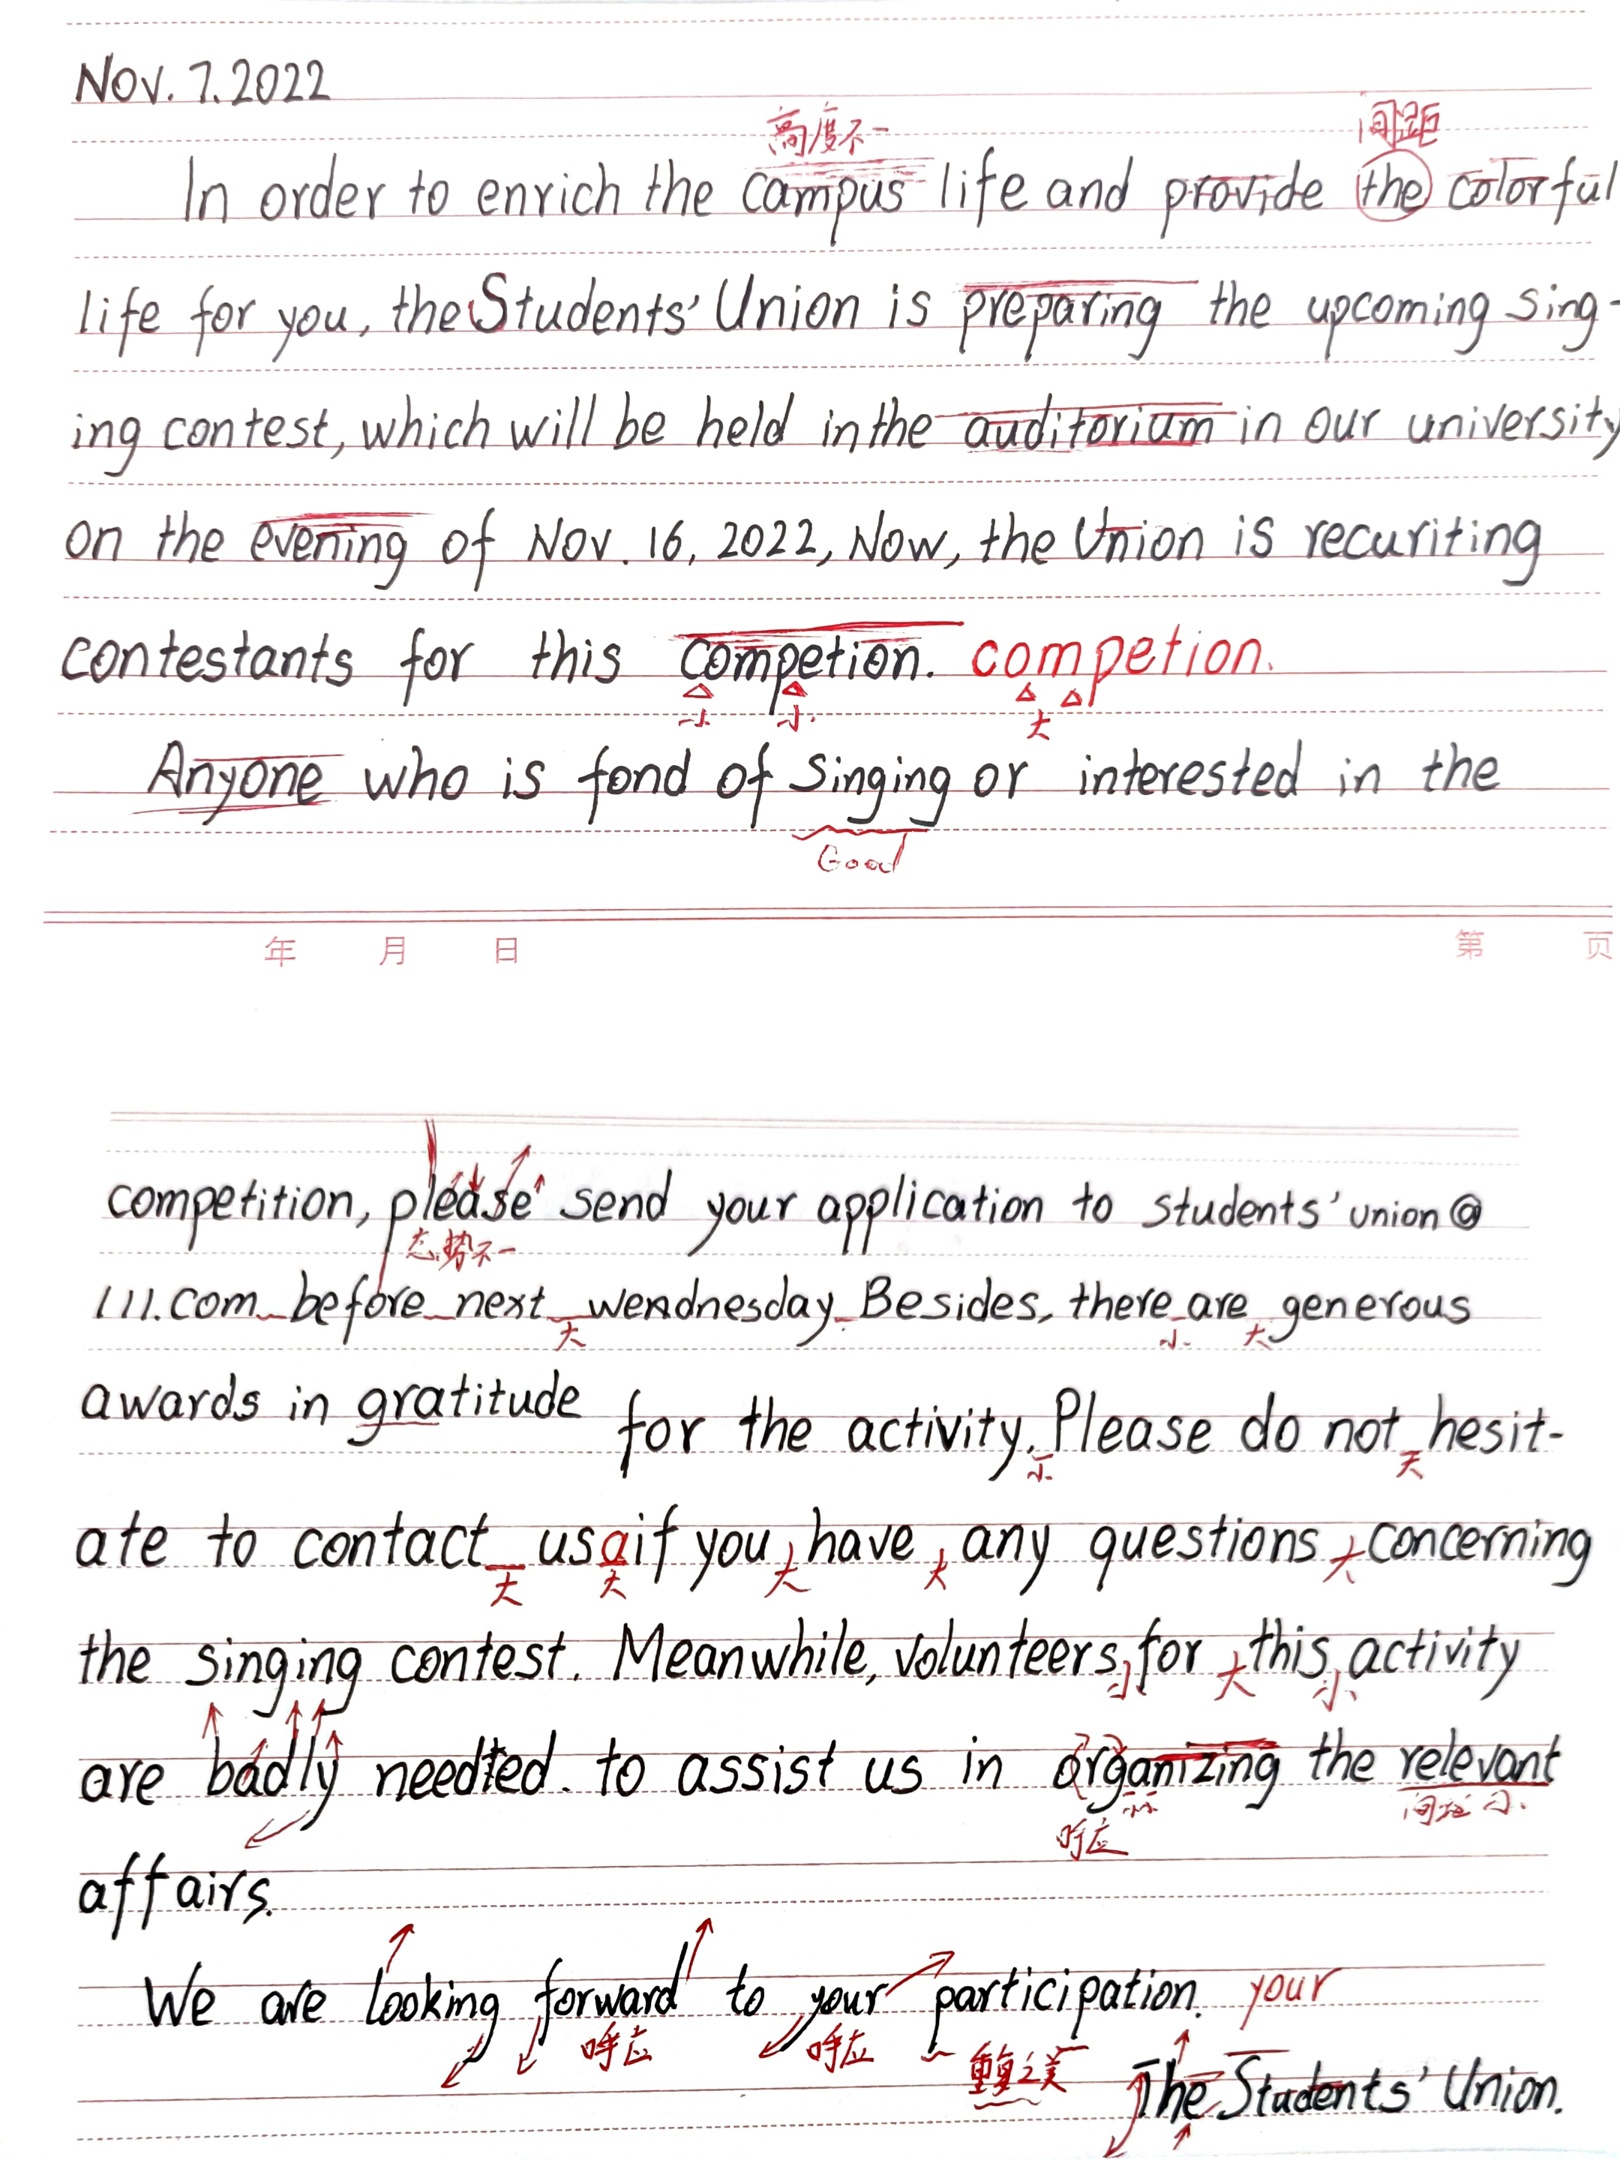 Nov. 7. 2022
高度不一 间距
In order to enrich the campus life and provide the colorful
life for you, the Students' Union is preparing the upcoming sing-
ing contest, which will be held in the auditorium in our university
on the evening of Nov. 16, 2022, Now, the Union is recuriting
contestants for this competion. competion.
小 小 大
Anyone who is fond of singing or interested in the
Good
年 月 日 第 页
competition, please send your application to students' union@
态势不一
111.com before next wendnesday. Besides, there are generous
大 小 大
awards in gratitude for the activity. Please do not hesit-
小 大
ate to contact us if you have any questions concerning
大 大 大 大 大
the singing contest. Meanwhile, volunteers for this activity
小 大 小
are badly needted. to assist us in organizing the relevant
呼应 小小 间距小
affairs.
We are looking forward to your participation. your
呼应 呼应 重复之美
The Students' Union.